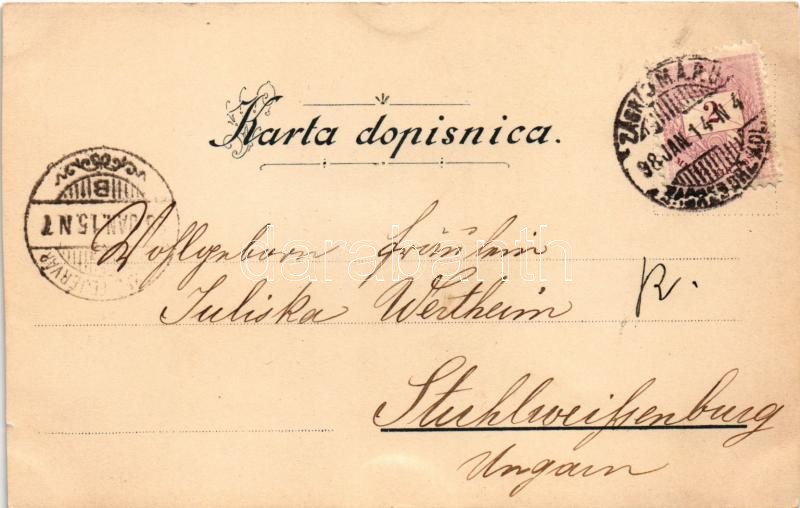 Karta dopisnica.
98 JAN. 14 N 4
2
B
JAN. 15. N 7
Wohlgeborn Fräulein
Juliska Wertheim
R.
Stuhlweißenburg
Ungarn
darabanth